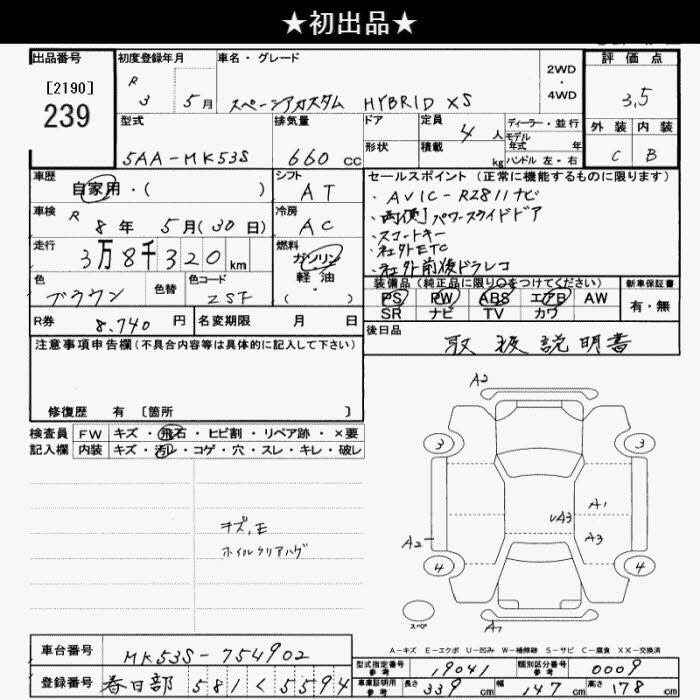 ★初出品★
出品番号
[2190]
239
初度登録年月
R 3 5月
車名・グレード
スペーシアカスタム HYBRID XS
2WD
・
4WD
評価点
3.5
外装 内装
C B
型式
5AA-MK53S
排気量
660cc
ドア
形状
定員
4人
積載
kg
ディーラー・並行
モデル
年式 年
ハンドル 左・右
車歴
自家用・( )
シフト
AT
車検
R 8年 5月(30日)
冷房
AC
走行
3万8千320km
燃料
ガソリン
軽油
・
( )
色
ブラウン
色替
色コード
ZSF
R券
8.740円
名変期限 月 日
セールスポイント(正常に機能するものに限ります)
・AVIC-RZ811ナビ
・両便パワースライドドア
・スマートキー
・社外ETC
・社外前後ドラレコ
装備品(純正品に限り○をつけてください)
PS PW ABS エアB AW
SR ナビ TV カワ
新車保証書
有・無
後日品
取扱説明書
注意事項申告欄(不具合内容等は具体的に記入して下さい)
修復歴 有 [箇所 ]
検査員
記入欄
FW キズ・飛石・ヒビ割・リペア跡・×要
内装 キズ・汚レ・コゲ・穴・スレ・キレ・破レ
キズ,E
ホイルクリアハゲ
A2
3
3
A1
UA3
A3
A2
4
4
スペア
A1
A-キズ E-エクボ U-凹み W-補修跡 S-サビ C-腐食 XX-交換済
車台番号
MK53S-754902
登録番号
春日部 581 く 5594
型式指定番号
参考
19041
類別区分番号
参考
0009
車庫証明用
参考
長さ 339cm 幅 147cm 高さ 178cm